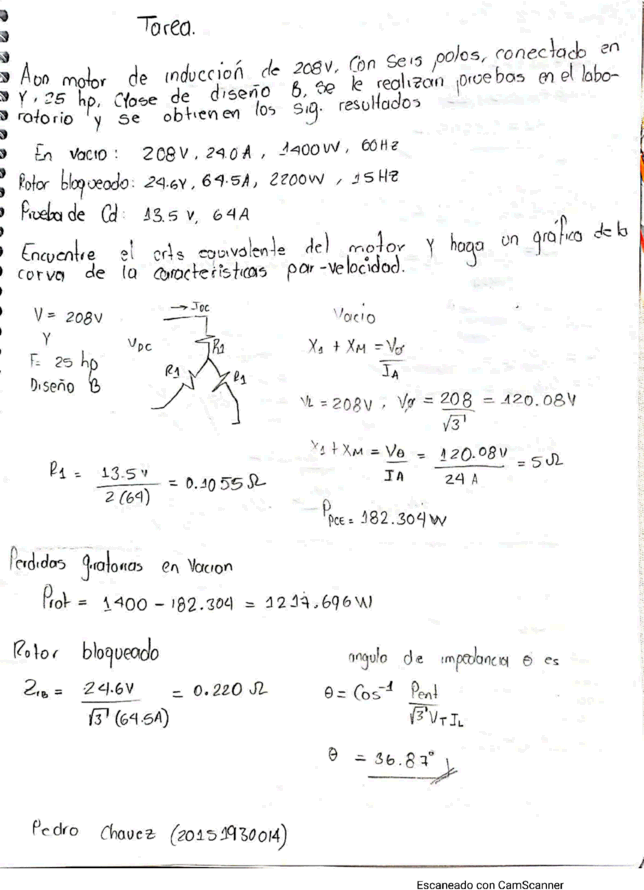 Tarea.
A un motor de inducción de 208V, Con seis polos, conectado en
Y, 25 hp, Clase de diseño B, se le realizan pruebas en el labo-
ratorio y se obtienen los sig. resultados
En vacio: 208V, 24.0A, 1400W, 60Hz
Rotor bloqueado: 24.6V, 64.5A, 2200W, 15Hz
Prueba de Cd: 13.5 v, 64A
Encuentre el crts equivalente del motor y haga un gráfico de la
curva de la caracteristicas par-velocidad.
V = 208V
Y
F: 25 hp
Diseño B
VDC
→ IDC
R1
R1
R1
Vacio
X1 + XM = Vø / IA
VL = 208V, Vø = 208 / √3 = 120.08V
X1 + XM = Vø / IA = 120.08V / 24 A = 5Ω
R1 = 13.5 v / 2(64) = 0.1055 Ω
PPCE = 182.304W
Perdidas giratorias en Vacion
Prot = 1400 - 182.304 = 1217.696W
Rotor bloqueado
Z1B = 24.6V / √3 (64.5A) = 0.220 Ω
angulo de impedancia θ es
θ = Cos⁻¹ Pent / √3 VT IL
θ = 36.87°
Pedro Chavez (20151930014)
Escaneado con CamScanner